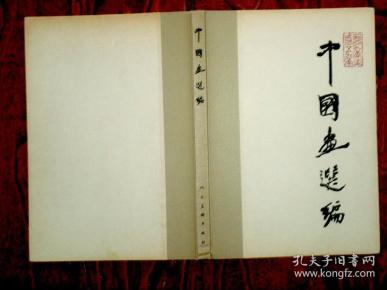 中國畫選編
中國畫選編
人民美術出版社
孔夫子旧书网
www.kongfz.com